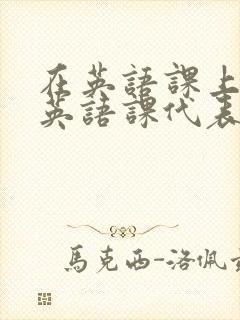 在英語課上
英語課代表
馬克西-洛佩